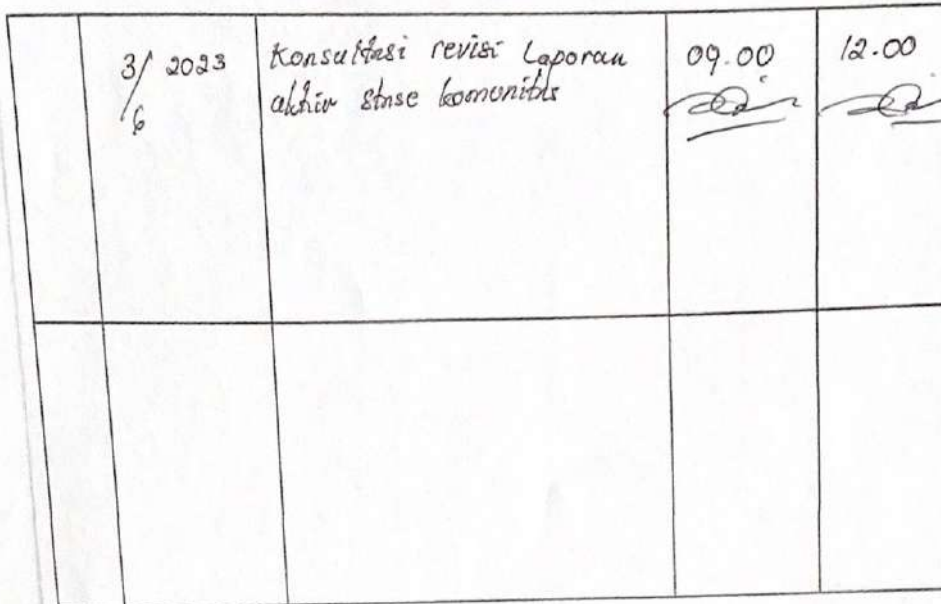 3/6 2023
Konsultasi revisi Laporan
akhir stase komunitas
09.00
12.00